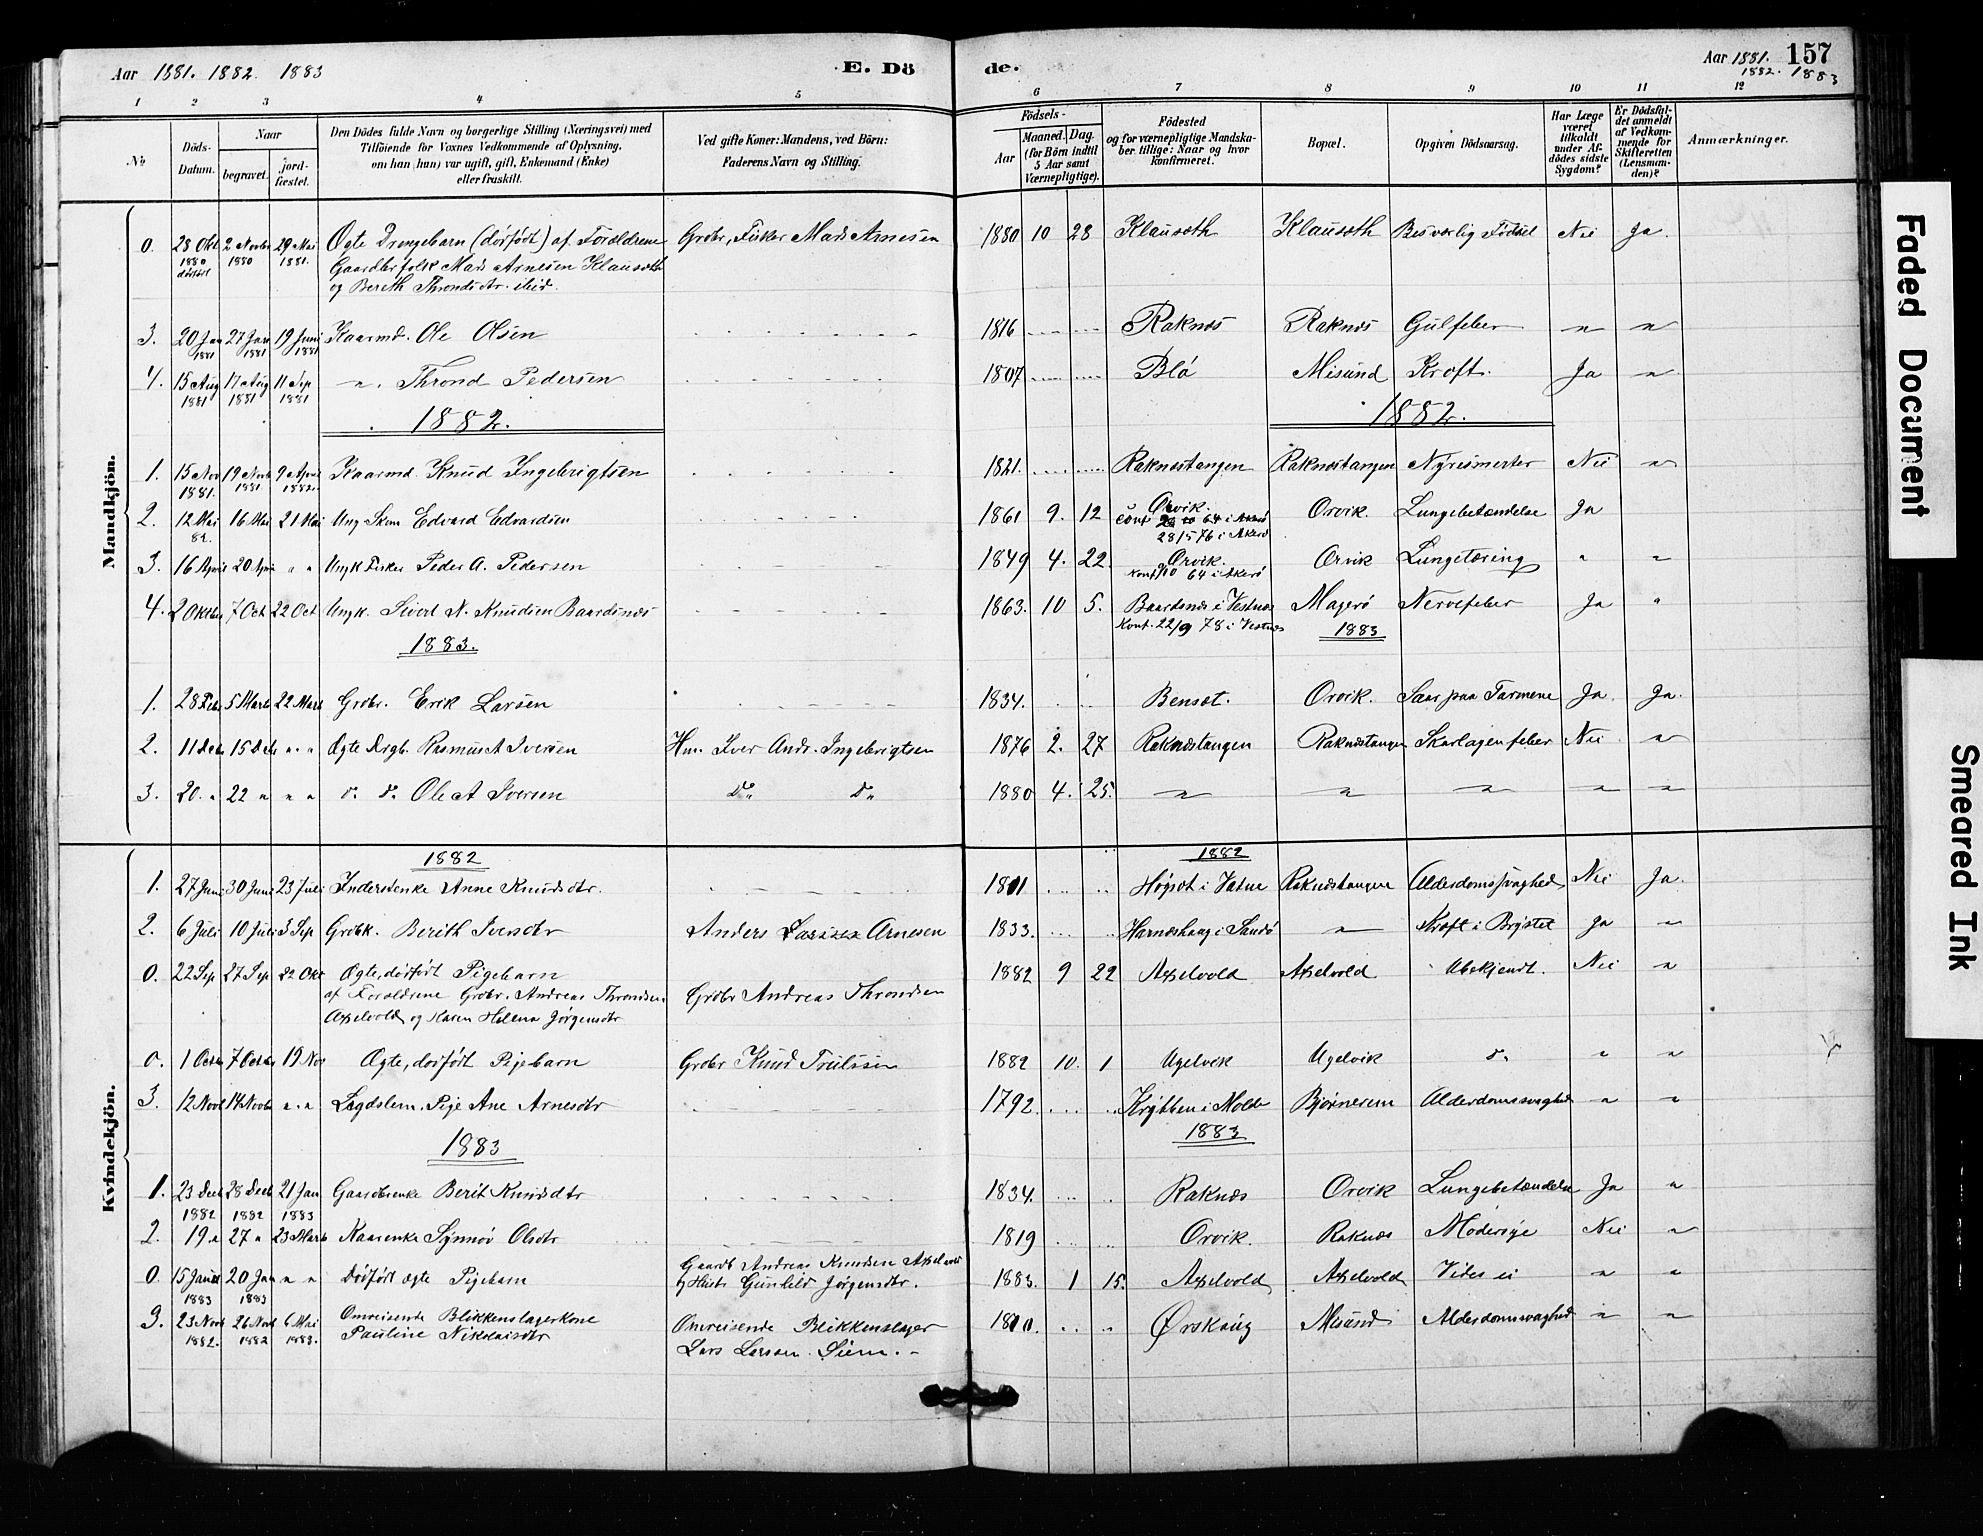 Aar 1881. 1882. 1883
E. Dö de.
Aar 1881. 1882. 1883
157
1 2 3 4 5 6 7 8 9 10 11 12
No
Döds-Datum.
Naar
begravet.
jord-fæstet.
Den Dödes fulde Navn og borgerlige Stilling (Næringsvei) med
Tilföiende for Voxnes Vedkommende af Oplysning,
om han (hun) var ugift, gift, Enkemand (Enke)
eller fraskilt.
Ved gifte Koner: Mandens, ved Börn:
Faderens Navn og Stilling.
Födsels-
Aar
Maaned. Dag.
(for Börn indtil
5 Aar samt
Værnepligtige).
Födested
og for værnepligtige Mandska-
ber tillige: Naar og hvor
konfirmeret.
Bopæl.
Opgiven Dödsaarsag.
Har Læge
været
tilkaldt
under Af-
dödes sidste
Sygdom?
Er Dödsfal-
det anmeldt
af Vedkom-
mende for
Skifteretten
(Lensman-
den)?
Anmærkninger.
Mandkjön.
0. 28 Okt 1880 2 Novbr 1880 29 Mai 1881. Ægte Drengebarn (dødfødt) af Forældrene Grdbr, Fisker Mads Arnesen 1880 10 28 Klausæth Klausæth Besværlig Fødsel Nei Ja.
Gaardbrfolk Mads Arnesen Klausæth
og Bereth Throndsdtr. ibid.
3. 20 Jan 1881 27 Jan 1881 19 Juni 1881 Kaarmd. Ole Olsen 1816 Raknæs Raknæs Gulfeber " "
4. 15 Aug 1881 17 Aug 1881 11 Sep 1881 " Thrond Pedersen 1807 Blø Misund Kræft. Ja "
1882. 1882.
1. 15 Nov 1881. 19 Novb 1881 9 April 1882. Kaarmd. Knud Ingebrigtsen 1821. Raknæstangen Raknæstangen Nyresmerter Nei "
2. 12 Mai 82. 16 Mai 21 Mai Ung Edvard Edvardsen 1861 9. 12 Orvik. Orvik. Lungebetændelse Ja
28/5 76 i Akerø
3. 16 April 20 Apri " " Ungk Fisker Peder A. Pedersen 1849 4. 22. Orvik. Orvik Lungetæring " "
64 i Akerø
4. 2 Oktbr 7 Oct 22 Oct Ungk. Sivert N. Knudsen Baardsnæs 1863. 10 5. Baardsnæs i Vestnæs Magerø Nervefeber Ja "
Konf. 22/9 78 i Vestnæs
1883. 1883
1. 28 Feb 5 Marts 22 Marts Grdbr. Erik Larsen 1834. Bensæt. Orvik. Saar paa Tarmene Ja Ja.
2. 11 Decb 15 Decb " " Ægte Drgb. Rasmus A Iversen Hm. Iver Andr. Ingebrigtsen 1876 2. 27 Raknæstangen Raknæstangen Skarlagenfeber Nei "
3. 20. " 22 " " " do do Ole A Iversen do do 1880 4. 25. " " " " "
Kvindekjön.
1882 1882
1. 27 Juni 30 Juni 23 Juli Inderstenke Anne Knudsdtr. 1811 Høgset i Vatne Raknæstangen Alderdomssvaghed Nei Ja.
2. 6 Juli 10 Juli 3 Sep Grdbk. Berith Iversdtr Anders Arnesen 1833. Harneshaug i Sandø " Kræft i Brystet Ja "
0. 22 Sep 27 Sep 22 Okt Ægte, dødfødt Pigebarn 1882 9 22 Axelvold Axelvold Ubekjendt. Nei "
af Forældrene Grdbr. Andreas Throndsen Grdbr Andreas Throndsen
Axelvold og Karen Helena Jørgensdtr
0. 1 Octbr 7 Octbr 19 Nov Ægte, dødfødt Pigebarn Grdbr Knud Trulssen 1882 10. 1 Ugelvik Ugelvik do " "
3. 12 Novb 14 Novbr " " Lægdslem. Pige Ane Arnesdtr 1792. Krybben i Molde Bjørnerem Alderdomssvaghed " "
1883 1883
1. 23 Decb 1882 28 Decb 1882 21 Jan 1883 Gaardbrenke Berit Knudsdtr 1834. Raknæs Orvik Lungebetændelse Ja "
2. 19 " 27 " 23 Marts Kaarenke Synnøv Olsdtr 1819 Orvik. Raknæs Modersyge Nei "
0. 15 Januar 1883 20 Jan 1883 " " Dødfødt ægte Pigebarn Gaardb Andreas Knudsen Axelvold 1883. 1 15. Axelvold Axelvold Vides ei " "
og Hustr Gunhild Jørgensdtr.
3. 23 Novb 1882. 26 Novb 1882 6 Mai 1883. Omreisende Blikkenslagerkone Omreisende Blikkenslager 1810. Ørskoug Misund Alderdomssvaghed " "
Pauline Nikolaisdtr Lars Larssen Siem.
Faded Document
Smeared Ink